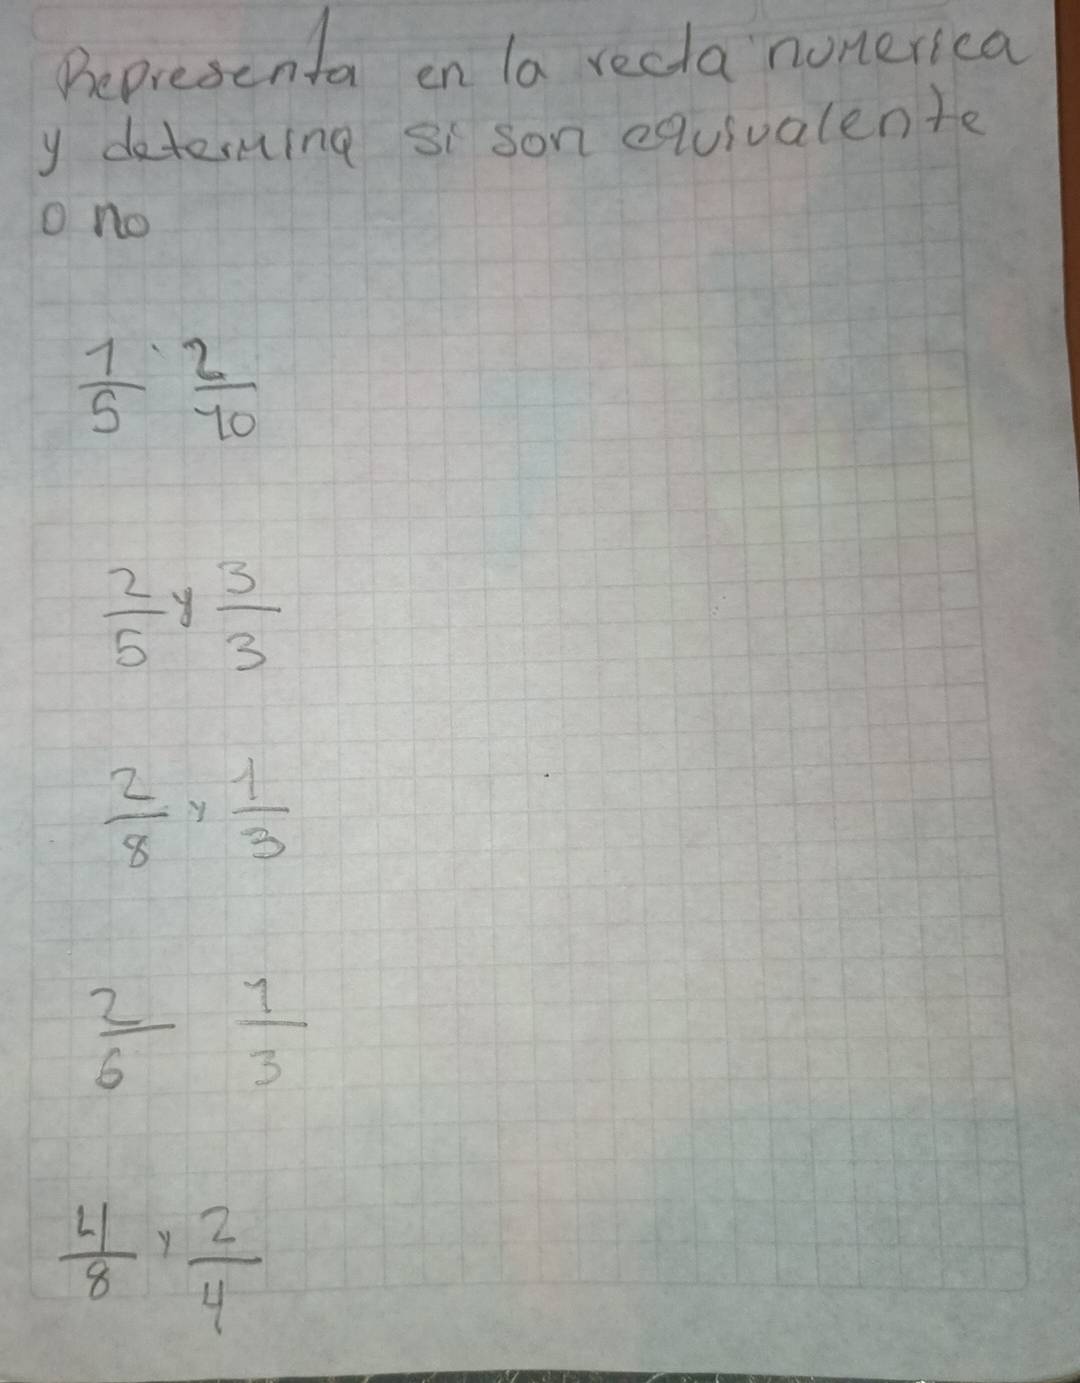 Representa en la recta numerica
y determina si son equivalente
o no
1/5 2/10
2/5 y 3/3
2/8 y 1/3
2/6 1/3
4/8 y 2/4